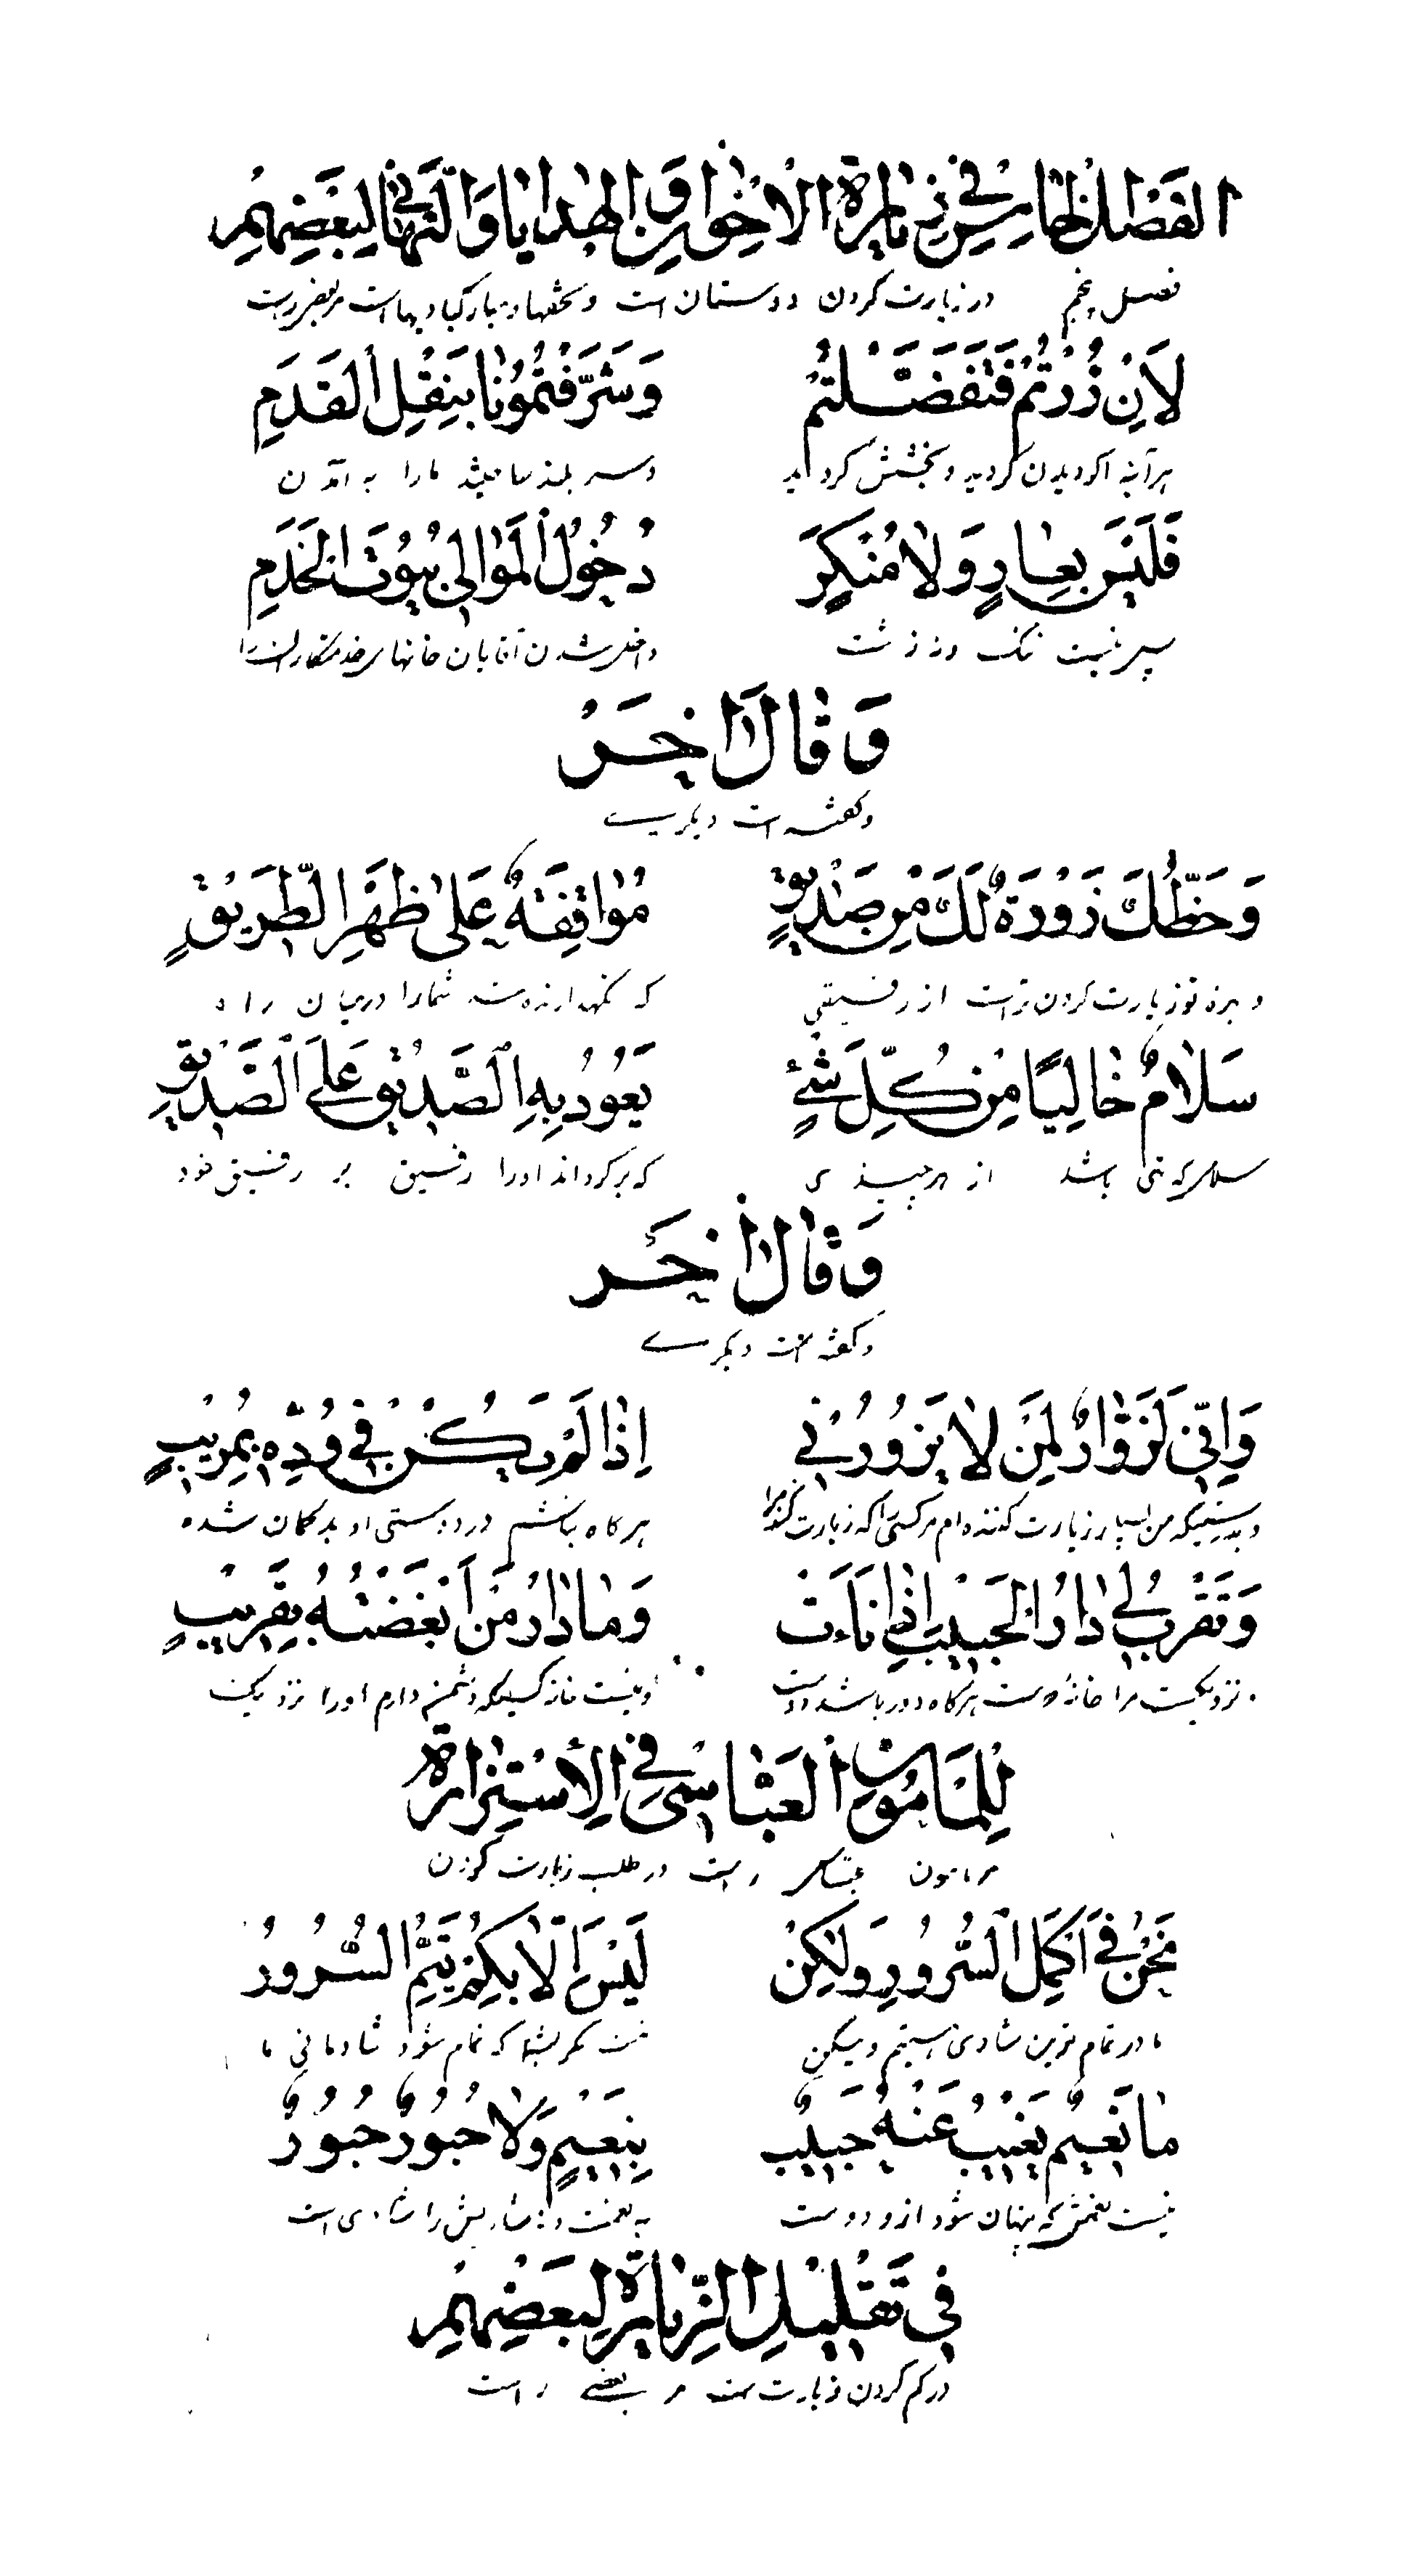 الفَصْلُ الخامِس في زِيارةِ الاخوانِ وَالهدايا وَالتَّهاني لبَعْضِهِمِ
فصل پنجم در زیارت کردن دوستان است و تحفها و مبارکبادیها است مر بعضی راست
لَاِنْ زُرْتُمْ فَتَفَضَّلْتُمُ وَشَرَّفْتُمُونا بِنَقْلِ القَدَمِ
هرآینه اگر دیدن کردید و بخشش کردید و سر بلند ساختید مارا به آمدن
فَلَيْسَ بِعارٍ وَلا مُنْكَرٍ دُخُولُ المَوالي بُيُوتَ الخَدَمِ
پس نیست ننگ و نه زشت داخل شدن آقایان خانهای خدمتکاران را
وَقالَ اخَرُ
و گفته است دیگری
وَحَظُّكَ زَوْرَةٌ لَكَ مِنْ صَديقٍ مُواقِفَةٌ عَلى ظَهْرِ الطَّريقٍ
و بهره تو زیارت کردن تراست از رفیقی که نگهدارنده شد شمارا درمیان راه
سَلامٌ خالِيًا مِنْ كُلِّ شَئٍ يَعُودُ بِهِ الصَّديقُ عَلَى الصَّديقِ
سلامی که تهی باشد از هر چیزی که برگرداند اورا رفیق بر رفیق خود
وَقالَ اخَر
و گفته است دیگری
وَاِنّي لَزَوّارٌ لِمَنْ لا يَزُورُني اِذا لَمْ يَكُنْ في وُدِّهِ بِمُريبٍ
و بدرستیکه من بسیار زیارت کننده ام مر کسی را که زیارت نکند مرا هرگاه نباشم در دوستی او بدگمان شده
وَتَقْرُبُ لي دارُ الحَبيبِ اِذا نَاَتْ وَما دارُ مَنْ اَبْغَضْتُهُ بِقَريبٍ
و نزدیکست مرا خانه دوست هرگاه دور باشد دوست و نیست خانه کسیکه دشمن دارم اورا نزدیک
لِلمَامُونِ العَبّاسيِّ في الاِسْتِزارَةِ
مر مامون عباسی راست در طلب زیارت کردن
نَحْنُ في اَكْمَلِ السُّرُورِ وَلكِنْ لَيْسَ اِلّا بِكُمْ يَتِمُّ السُّرُورُ
ما در تمام ترین شادی هستیم ولیکن نیست مگر بشما که تمام شود شادمانی ما
ما نَعيمٌ يَغيبُ عَنْهُ حَبيبٌ بِنَعيمٍ وَلا حُبُورٌ حُبُورٌ
نیست نعمتی که پنهان شود از و دوست به نعمت و نه شادیش را شادی است
في تَقْليلِ الزِّيارَةِ لِبَعضِهِمِ
در کم کردن زیارت مر بعضی راست